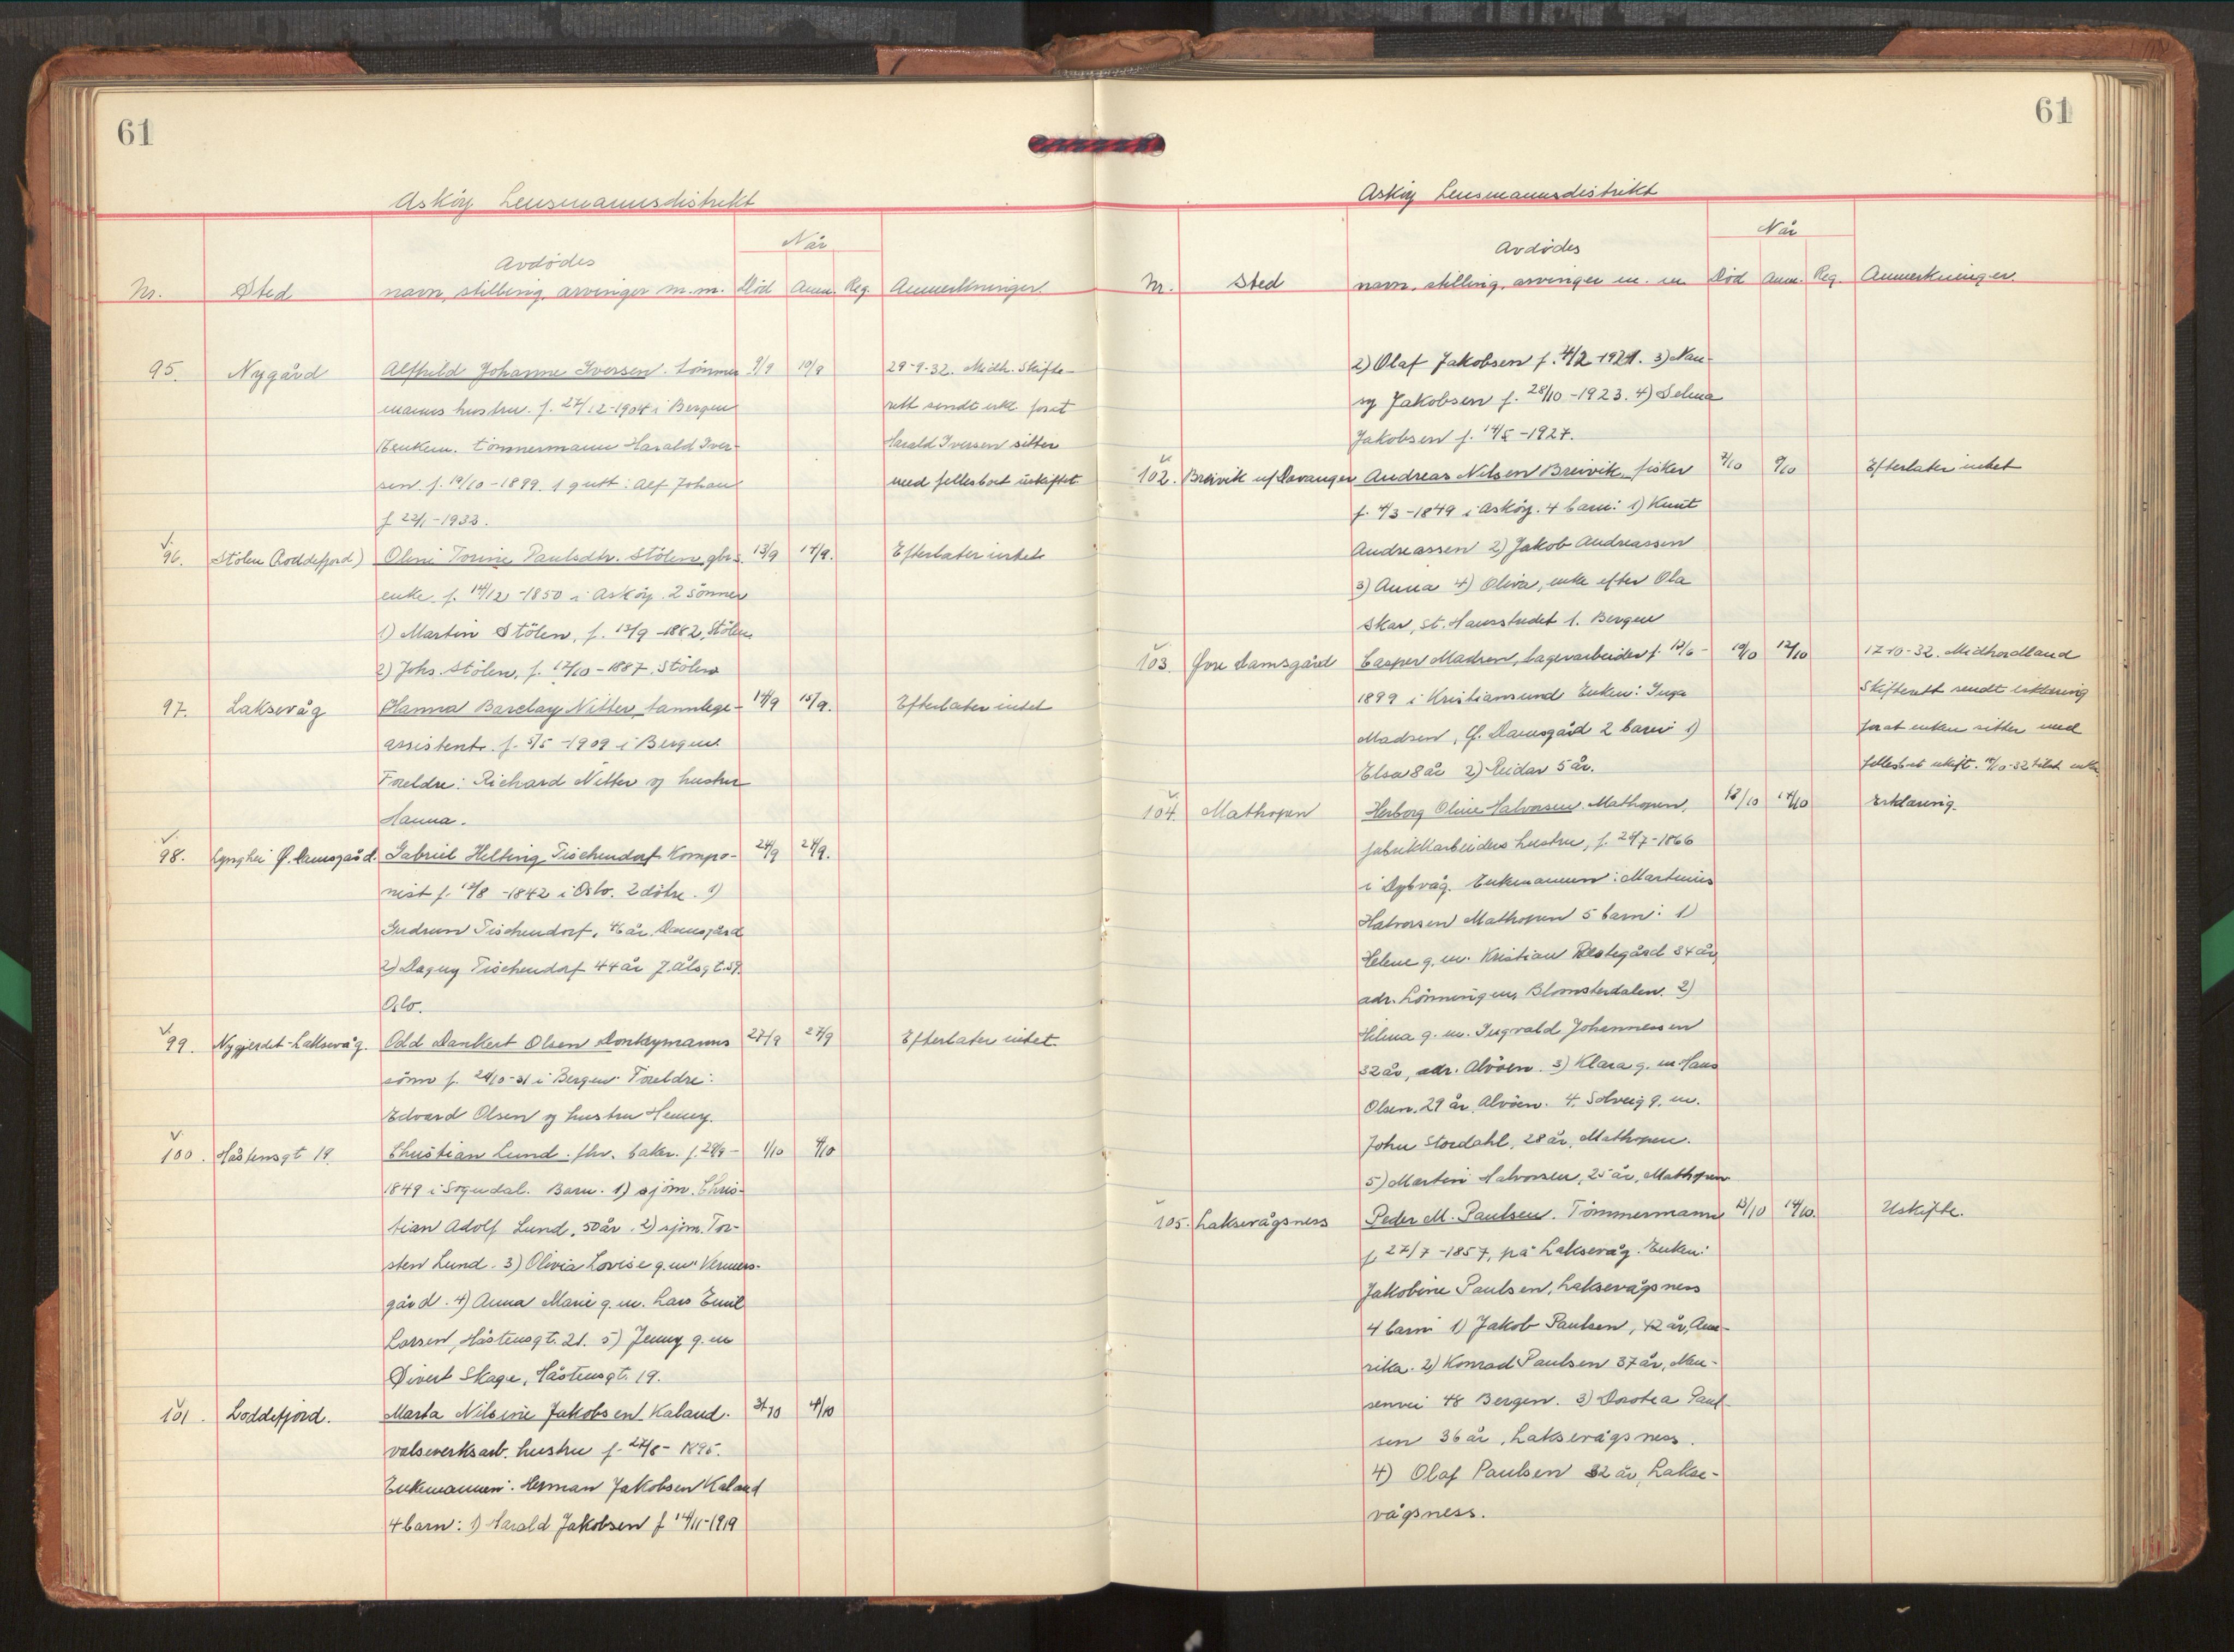 61
Asköy Lensmannsdistrikt
Når
Avdödes
Nr. Sted navn, stilling, arvinger m.m. Död Anm. Reg. Anmerkninger.
95. Nygård Alfhild Johanne Iversen. tömmer 9/9 10/9 29-9-32. Midh. Skifte-
manns hustru. f. 27/12-1904 i Bergen rett sendt erkl. forat
Enkem. tömmermann Harald Iver- Harald Iversen sitter
sen. f. 19/10-1899. 1 gutt: Alf Johan med fellesboet uskiftet
f. 22/1-1933.
96. Stölen (Loddefjord) Oline Torine Paulsdtr. Stölen gbrs. 13/9 14/9. Efterlater intet
enke f. 14/12-1850 i Asköy. 2 sönner
1) Martin Stölen, f. 13/9-1882, Stölen
2) Johs. Stölen, f. 17/10-1887. Stölen
97. Laksevåg Hanna Barclay Nitter, tannlege- 14/9 15/9. Efterlater intet
assistent. f. 5/5-1909 i Bergen.
Foreldre: Richard Nitter og hustru
Hanna.
98. Lynghei Ø. Damsgård. Gabriel Helting Tischendorf Kompo- 24/9 27/9.
nist f. 12/8-1842 i Oslo. 2 dötre. 1)
Gudrun Tischendorf, 46 år. Damsgård
2) Dagny Tischendorf 44 år
Oslo.
99. Nygjerdet-Laksevåg. Odd Dankert Olsen Donkeymanns 27/9 27/9 Efterlater intet.
sönn f. 24/10-31 i Bergen. Foreldre:
Edvard Olsen og hustru Henny.
100. Håstensgt 19. Christian Lund. fhv. baker. f. 29/9- 1/10 4/10
1849 i Sogndal. Barn. 1) sjöm. Chris-
tian Adolf Lund. 50 år. 2) sjöm. Tor-
sten Lund. 3) Olivia Lovise g.m. Vermers-
gård. 4) Anna Marie g. m. Lars Emil
Larsen, Håstensgt. 21. 5) Jenny g. m
Sivert Skage, Håstensgt. 19.
101. Loddefjord. Marta Nilsine Jakobsen Kaland. 3/10 4/10
valseverksarb. hustru f. 27/8-1895.
Enkemannen: Herman Jakobsen Kaland
4 barn: 1) Harald Jakobsen f 14/11-1919
61
Asköy Lensmannsdistrikt
Når
Avdödes
Nr. Sted navn, stilling, arvinger m. m. Död Anm. Reg. Anmerkninger.
2) Olaf Jakobsen f. 4/2-1921. 3) Nan-
sy Jakobsen f. 28/10-1923. 4) Selma
Jakobsen f. 14/5-1927.
102. Breivik u/Davanger Andreas Nilsen Breivik, fisker 7/10 9/10 Efterlater intet
f. 4/3-1849 i Asköy. 4 barn: 1) Knut
Andreassen 2) Jakob Andreassen
3) Anna 4) Oliva, enke efter Ola
Skar, St. Hansstredet 1. Bergen
103. Övre Damsgård Casper Madsen, lagerarbeider f. 12/6- 10/10 12/10 17-10-32. Midhordland
1899 i Kristiansund Enken: Inga Skifterett sendt erklæring
Madsen, Ø. Damsgård 2 barn 1) forat enken sitter med
Elsa 8 år 2) Reidar 5 år. fellesboet uskift.
104. Mathopen Herborg Oline Halvorsen, Mathopen, 12/10 14/10 Erklæring.
fabrikkarbeiders hustru, f. 24/7-1866
i Dybvåg. Enkemannen: Martinius
Halvorsen Mathopen 5 barn: 1)
Helene g. m. Kristian 34 år,
adr. Lönningen, Blomsterdalen. 2)
Helma g. m. Ingvald Johannessen
32 år, adr. Alvöen. 3) Klara g. m Hans
Olsen. 29 år. Alvöen. 4. Solveig g. m.
John Stordahl, 28 år, Mathopen.
5) Martin Halvorsen, 25 år, Mathopen
105. Laksevågsness Peder M. Paulsen. Tömmermann 13/10 14/10. Uskifte.
f. 27/7-1857, på Laksevåg. Enken:
Jakobine Paulsen, Laksevågsness
4 barn 1) Jakob Paulsen, 42 år, Ame-
rika. 2) Konrad Paulsen 37 år, Nan-
senvei 48 Bergen. 3) Dorotea Paul-
sen 36 år, Laksevågsness.
4) Olaf Paulsen 32 år, Lakse-
vågsness.